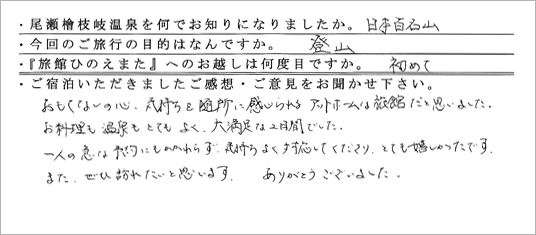 ・尾瀬檜枝岐温泉を何でお知りになりましたか。日本百名山
・今回のご旅行の目的はなんですか。 登山
・『旅館ひのえまた』へのお越しは何度目ですか。 初めて
・ご宿泊いただきましたご感想・ご意見をお聞かせ下さい。
おもてなしの心、気持ちを随所に感じられるアットホームな旅館だと思いました。
お料理も温泉もとてもよく、大満足な2日間でした。
一人の急な予約にもかかわらず、気持ちよく対応してくださり、とても嬉しかったです。
また、ぜひ訪れたいと思います。 ありがとうございました。